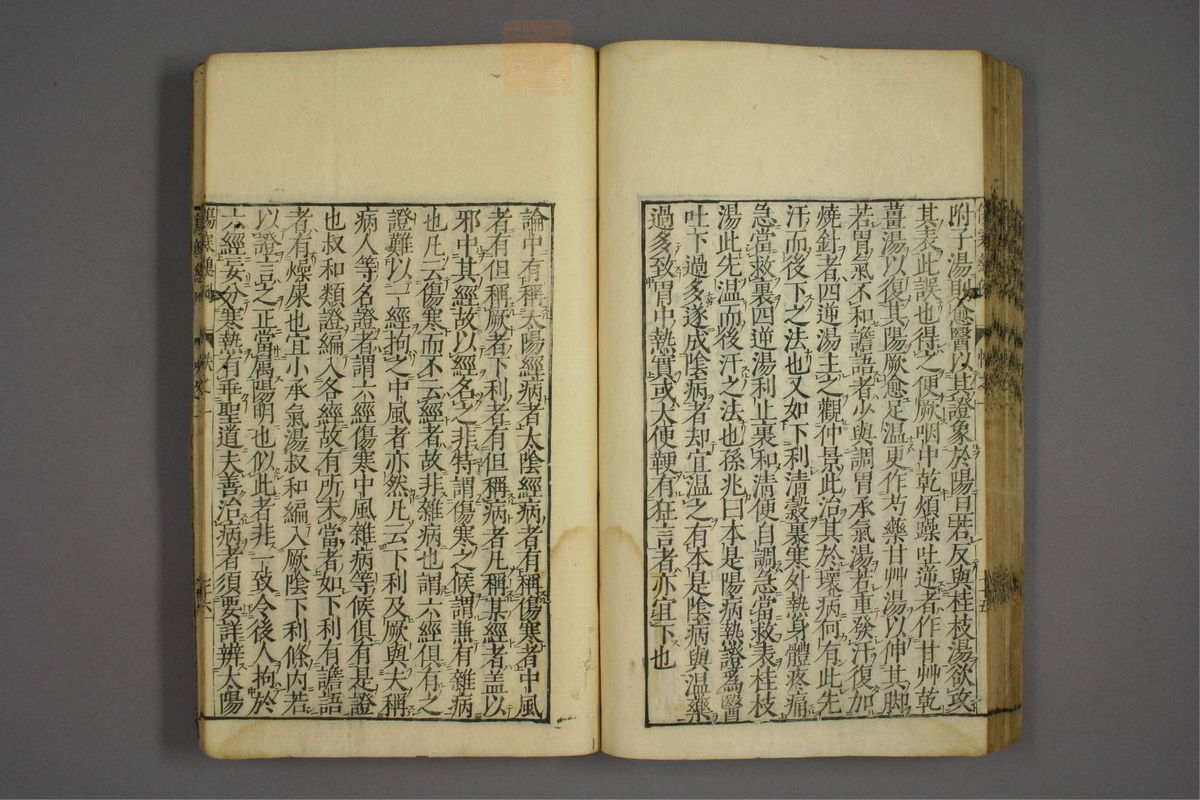 附子湯則愈醫以其證象於陽旦若反與桂枝湯欲攻
其表此誤也得之便厥咽中乾煩躁吐逆者作甘艸乾
薑湯以復其陽厥愈足温更作芍藥甘艸湯以伸其脚
若胃氣不和譫語者少與調胃承氣湯若重發汗復加
燒針者四逆湯主之觀仲景此治其於壞病何有此先
汗而後下之法也又如下利清穀裏寒外熱身體疼痛
急當救裏四逆湯利止裏和清便自調急當救表桂枝
湯此先温而後汗之法也孫兆曰本是陽病熱證爲醫
吐下過多遂成陰病者却宜温之有本是陰病與温藥
過多致胃中熱實或大便鞕有狂言者亦宜下也
論中有稱太陽經病者太陰經病者有稱傷寒者中風
者有但稱厥者下利者有但稱病者凡稱某經者盖以
邪中其經故以經名之非特謂傷寒之候謂兼有雜病
也凡云傷寒而不云經者故非雜病也謂六經俱有之
證難以一經拘之中風者亦然凡云下利及厥與夫稱
病人等名證者謂六經傷寒中風雜病等候俱有是證
也叔和類證編入各經故有所未當者如下利有譫語
者有燥屎也宜小承氣湯叔和編入厥陰下利條内若
以證言之正當屬陽明也似此者非一致令後人拘於
六經妄分寒熱有乖聖道夫善治病者須要詳辨太陽